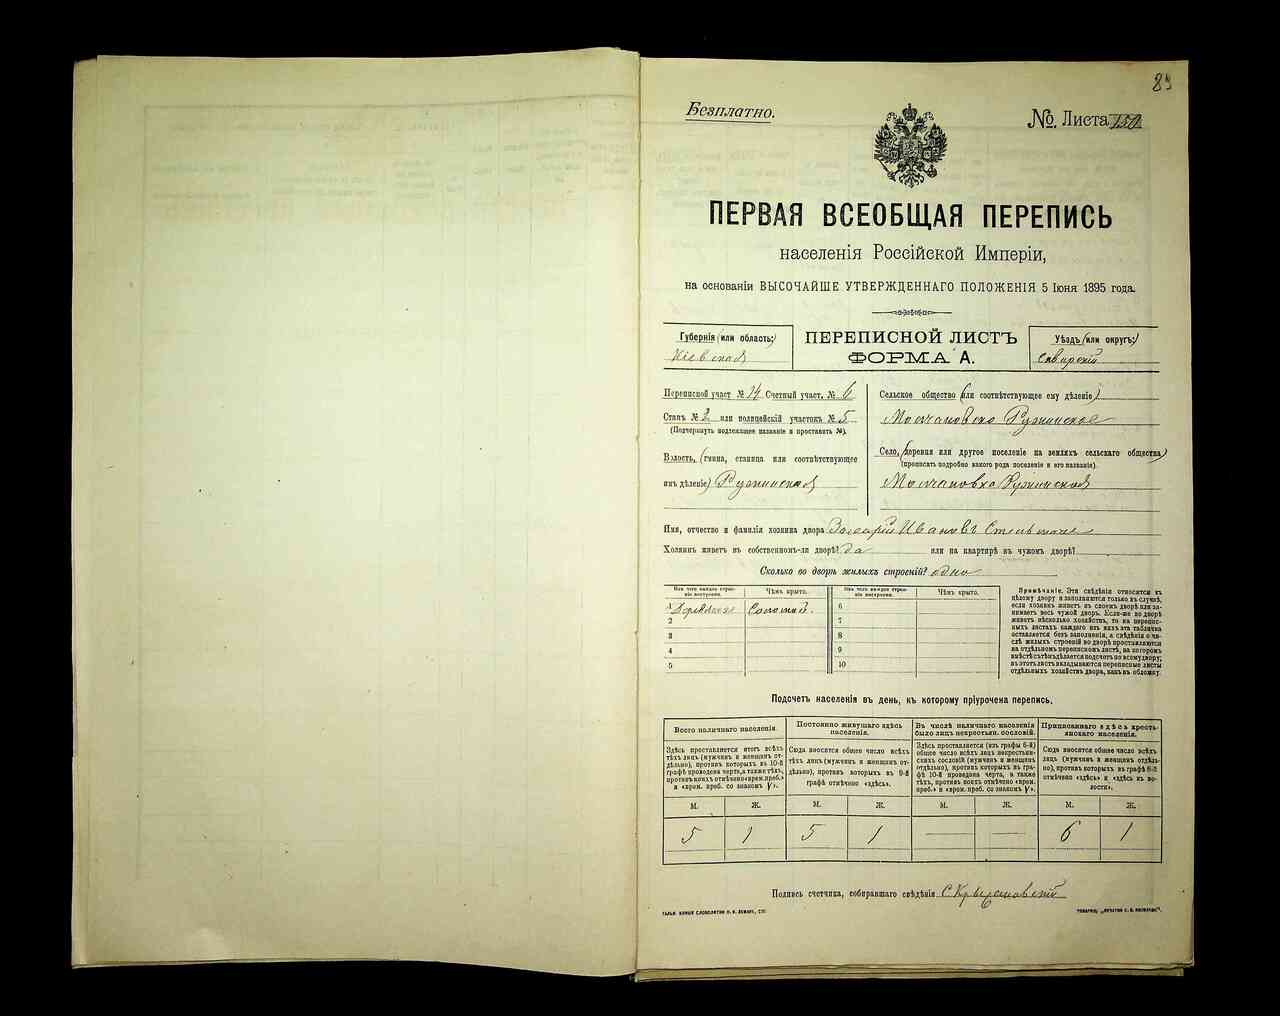 89
Безплатно.
№. Листа 150
ПЕРВАЯ ВСЕОБЩАЯ ПЕРЕПИСЬ
населенія Россійской Имперіи,
на основаніи ВЫСОЧАЙШЕ УТВЕРЖДЕННАГО ПОЛОЖЕНІЯ 5 Іюня 1895 года.
Губернія (или область:)
Кіевская
ПЕРЕПИСНОЙ ЛИСТЪ
ФОРМА А.
Уѣздъ (или округъ:)
Сквирскій
Переписной участ № 14 Счетный участ, № 6
Станъ № 2 или полицейскій участокъ № 5
(Подчеркнуть подлежащее названіе и проставить №).
Волость, (гмина, станица или соотвѣтствующее
имъ дѣленіе) Ружинская
Сельское общество (или соотвѣтствующее ему дѣленіе)
Молчановско Ружинское
Село, (деревня или другое поселеніе на земляхъ сельскаго общества)
(прописать подробно какого рода поселеніе и его названіе).
Молчановка Ружинская
Имя, отчество и фамилія хозяина двора Иванов
Хозяинъ живетъ въ собственномъ-ли дворѣ? да или на квартирѣ въ чужомъ дворѣ?
Сколько во дворѣ жилыхъ строеній? одно
Изъ чего каждое строеніе построено.
Чѣмъ крыто.
Изъ чего каждое строеніе построено.
Чѣмъ крыто.
1 Соломой. 6
2 7
3 8
4 9
5 10
Примѣчаніе. Эти свѣдѣнія относятся къ
цѣлому двору и заполняются только въ случаѣ,
если хозяинъ живетъ въ своемъ дворѣ или за-
нимаетъ весь чужой дворъ. Если-же во дворѣ
живетъ нѣсколько хозяйствъ, то на перепис-
ныхъ листахъ каждаго изъ нихъ эта табличка
оставляется безъ заполненія, а свѣдѣнія о чи-
слѣ жилыхъ строеній во дворѣ проставляются
на отдѣльномъ переписномъ листѣ, на которомъ
вмѣстѣ съ тѣмъ дѣлается подсчетъ по всему двору;
въ этотъ листъ вкладываются переписные листы
отдѣльныхъ хозяйствъ двора, какъ въ обложку.
Подсчетъ населенія въ день, къ которому пріурочена перепись.
Всего наличнаго населенія
Постоянно живущаго здѣсь населенія.
Въ числѣ наличнаго населенія было лицъ некрестьян. сословій.
Приписаннаго здѣсь крестьянскаго населенія.
Здѣсь проставляется итогъ всѣхъ
тѣхъ лицъ (мужчинъ и женщинъ от-
дѣльно), противъ которыхъ въ 10-й
графѣ проведена черта, а также тѣхъ,
противъ коихъ отмѣчено «врем. преб.»
и «врем. преб. со знакомъ V».
Сюда вносится общее число всѣхъ
тѣхъ лицъ (мужчинъ и женщинъ от-
дѣльно), противъ которыхъ въ 9-й
графѣ отмѣчено «здѣсь».
Здѣсь проставляется (изъ графы 6-й)
общее число всѣхъ лицъ некрестьян-
скихъ сословій (мужчинъ и женщинъ
отдѣльно), противъ которыхъ въ гра-
фѣ 10-й проведена черта, а также
тѣхъ, противъ коихъ отмѣчено «врем.
преб.» и «врем. преб. со знакомъ V».
Сюда вносится общее число всѣхъ
лицъ (мужчинъ и женщинъ отдѣль-
но), противъ которыхъ въ графѣ 8-й
отмѣчено «здѣсь» и «здѣсь въ во-
лости».
М. Ж. М. Ж. М. Ж. М. Ж.
5 1 5 1 — — 6 1
Подпись счетчика, собиравшаго свѣдѣнія